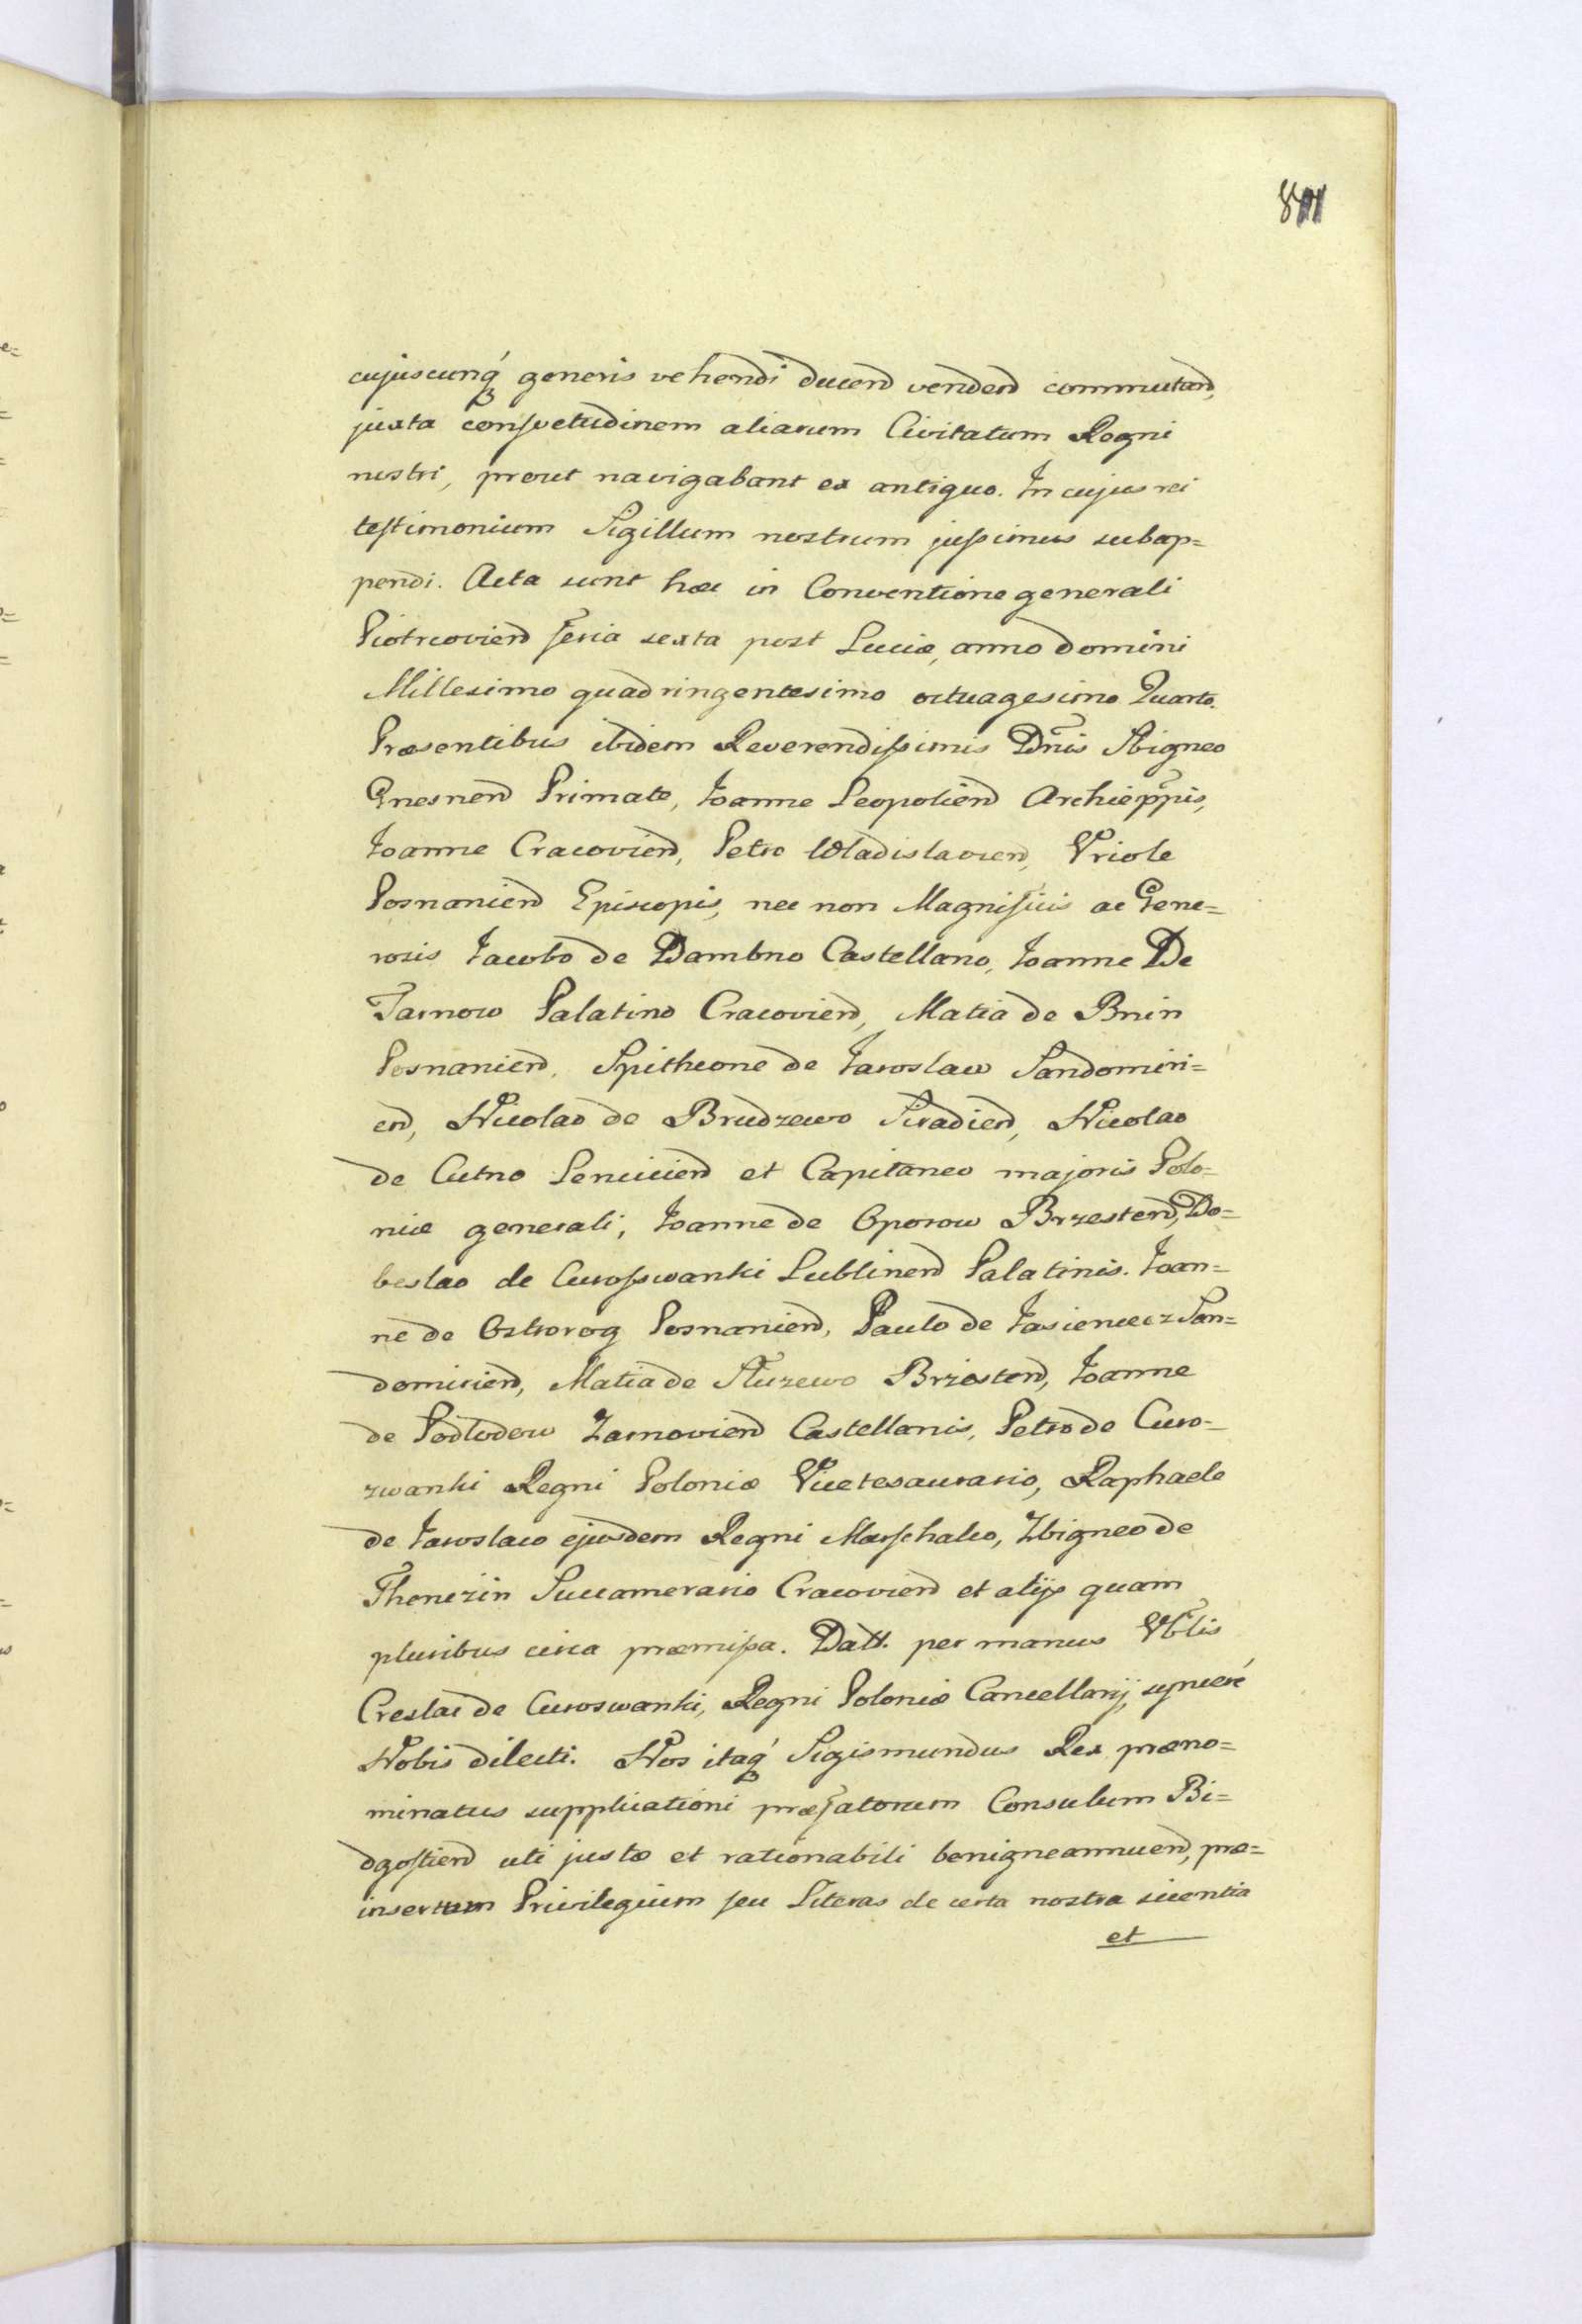 cujuscunq́ generis vehendi ducend vendend commutand,
juxta consvetudinem aliarum Civitatum Regni
nostri, prout navigabant ex antiquo. In cujus rei
testimonium Sigillum nostrum jussimus subap=
pendi. Acta sunt hæc in Conventione generali
Piotrcoviend feria sexta post Luciæ, anno domini
Millesimo quadringentesimo octuagesimo Quarto.
Præsentibus ibidem Reverendissimis Dnis Sbigneo
Gnesnend Primate, Joanne Leopoliend Archieppis,
Joanne Cracoviend, Petro Wladislaviend, Vriole
Posnaniend Episcopis, nec non Magnificis ac Gene=
rosis Jacobo de Dambno Castellano, Joanne De
Tarnow Palatino Cracoviend, Matia de Bnin
Posnaniend, Spithcone de Jaroslaw Sandomiri=
end, Nicolao de Brudzewo Siradiend, Nicolao
de Cutno Lenciciend et Capitaneo majoris Polo=
niæ generali, Joanne de Oporow Brzestend, Do=
beslao de Curosswanki Lublinend Palatinis. Joan=
ne de Ostrorog Posnaniend, Paulo de Jasieniecz San=
domiriend, Matia de Sluzewo Brzestend, Joanne
de Podlodow Zarnoviend Castellanis, Petro de Curo=
zwanki Regni Poloniæ Vicetesaurario, Raphaele
de Jaroslaw ejusdem Regni Marschalco, Zbigneo de
Thenczin Succamerario Cracoviend et alijs quam
pluribus circa præmissa. Datt. per manus Vblis
Creslai de Curoswanki, Regni Poloniæ Cancellarij, synceré
Nobis dilecti. Nos itaq́ Sigismundus Rex præno=
minatus supplicationi præfatorum Consulum Bi=
dgostiend uti justæ et rationabili benigne annuend, præ=
insertum Privilegium seu Literas de certa nostra scientia
et